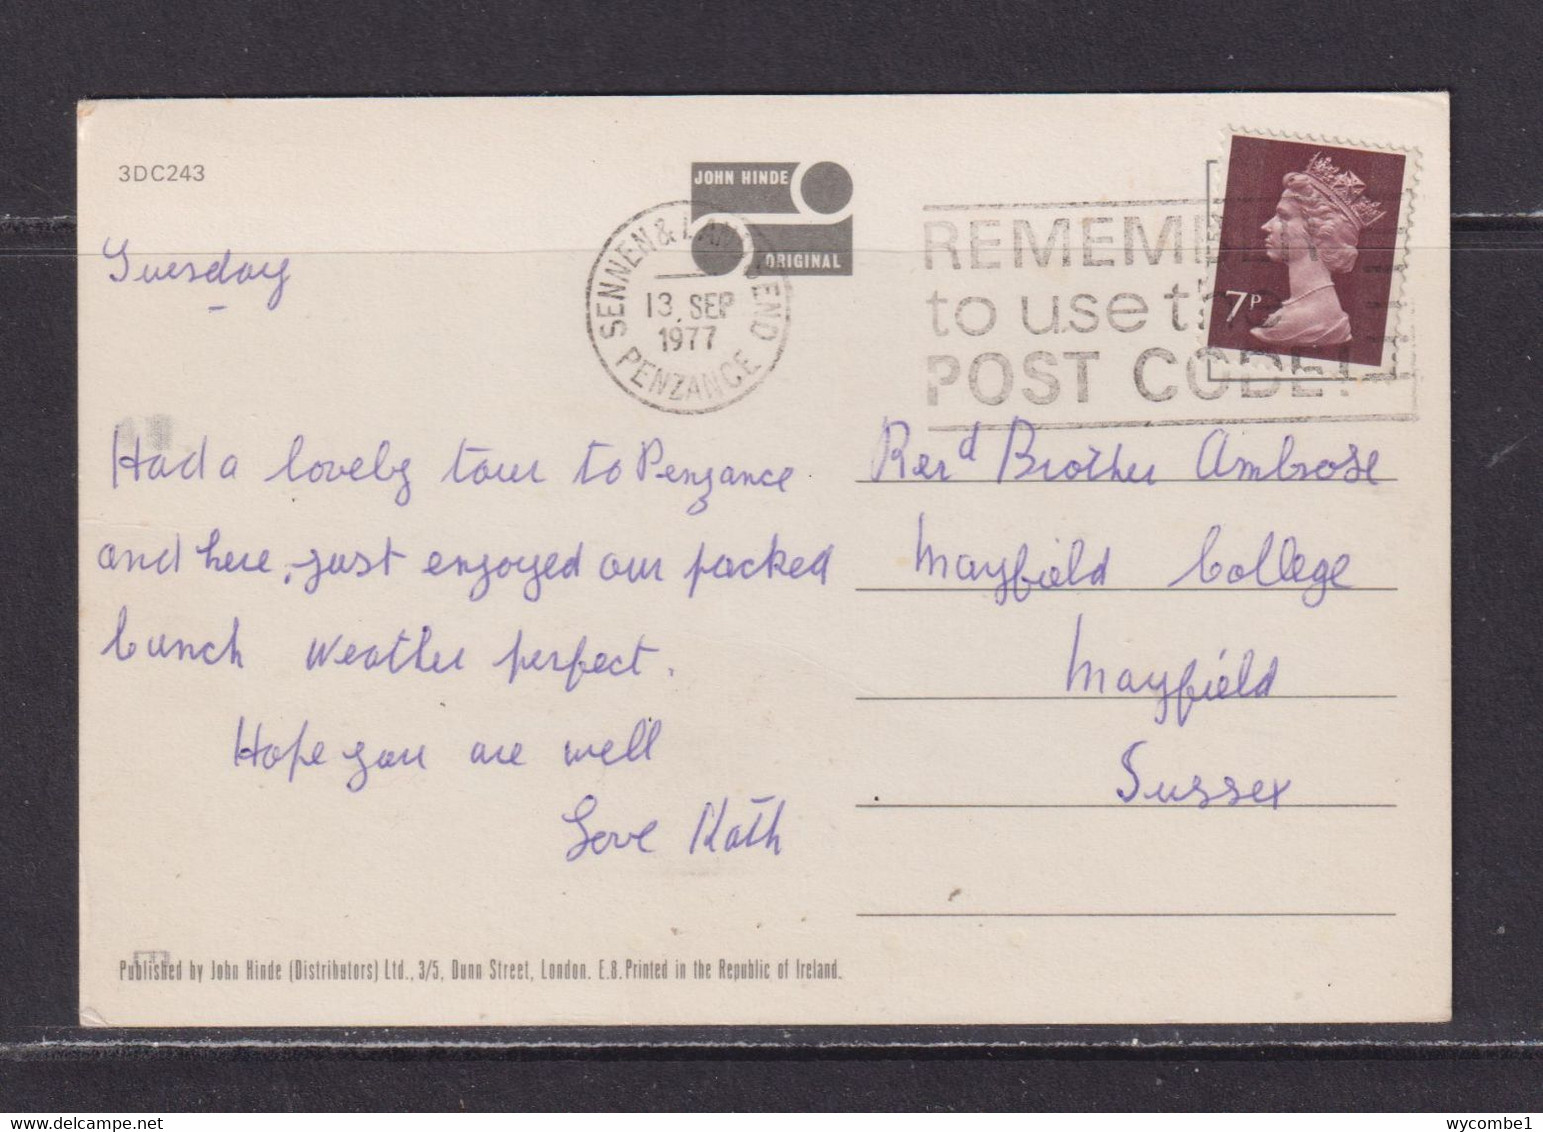 3DC243
JOHN HINDE
ORIGINAL
SENNEN & LAND'S END
13. SEP
1977
PENZANCE
REMEMBER
to use the
POST CODE!
7P
Tuesday
Had a lovely tour to Penzance
and here, just enjoyed our packed
lunch weather perfect.
Hope you are well
Love Kath
Rev d Brother Ambrose
Mayfield College
Mayfield
Sussex
Published by John Hinde (Distributors) Ltd., 3/5, Dunn Street, London. E.8. Printed in the Republic of Ireland.
wycombe1